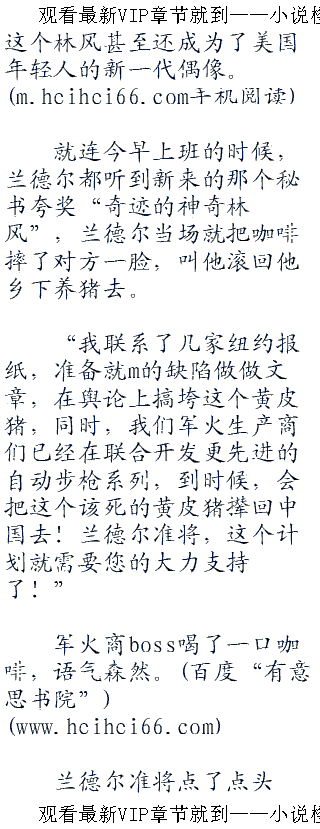 观看最新VIP章节就到——小说检
这个林风甚至还成为了美国
年轻人的新一代偶像。
(m.hcihci66.com手机阅读)
就连今早上班的时候，
兰德尔都听到新来的那个秘
书夸奖“奇迹的神奇林
风”，兰德尔当场就把咖啡
摔了对方一脸，叫他滚回他
乡下养猪去。
“我联系了几家纽约报
纸，准备就m的缺陷做做文
章，在舆论上搞垮这个黄皮
猪，同时，我们军火生产商
们已经在联合开发更先进的
自动步枪系列，到时候，会
把这个该死的黄皮猪撵回中
国去！兰德尔准将，这个计
划就需要您的大力支持
了！”
军火商boss喝了一口咖
啡，语气森然。(百度“有意
思书院”)
(www.hcihci66.com)
兰德尔准将点了点头
观看最新VIP章节就到——小说检